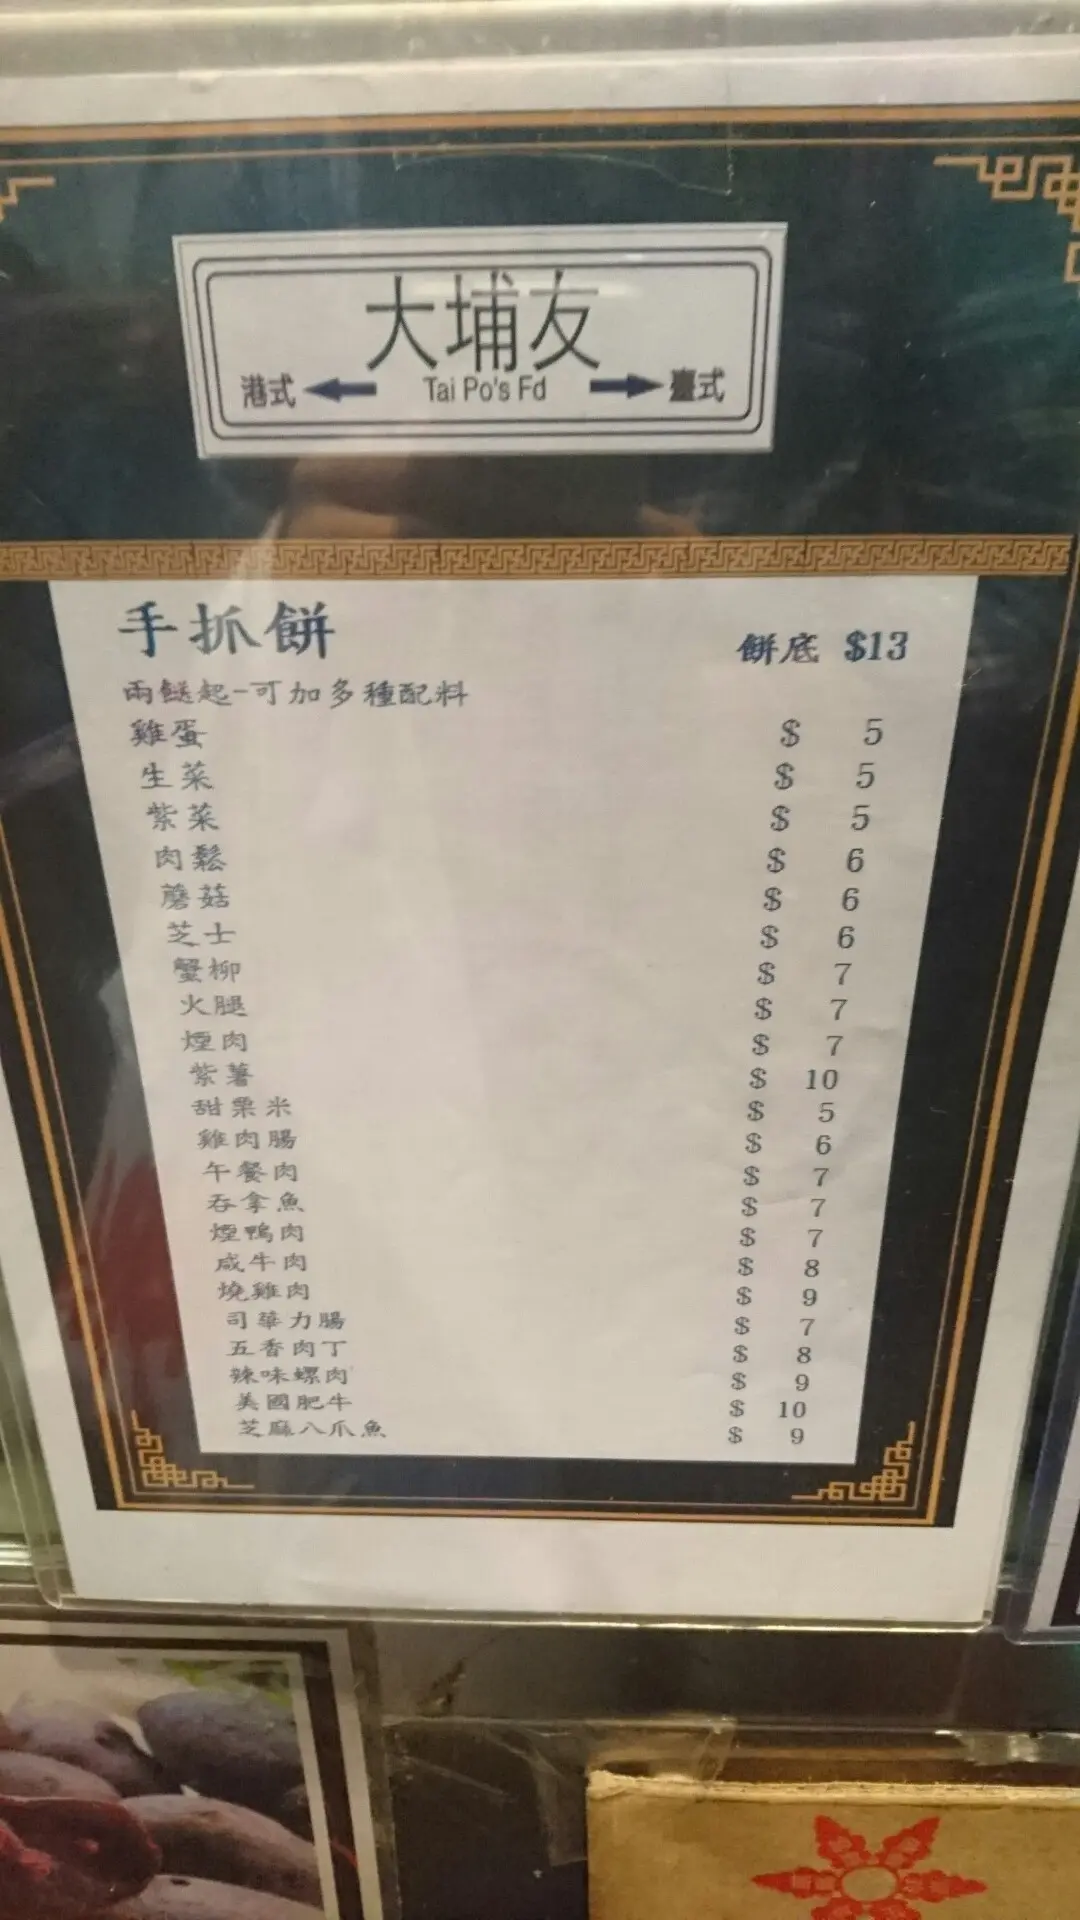 大埔友
港式 Tai Po's Fd 臺式
手抓餅 餅底 $13
兩餸起-可加多種配料
雞蛋 $ 5
生菜 $ 5
紫菜 $ 5
肉鬆 $ 6
蘑菇 $ 6
芝士 $ 6
蟹柳 $ 7
火腿 $ 7
煙肉 $ 7
紫薯 $ 10
甜粟米 $ 5
雞肉腸 $ 6
午餐肉 $ 7
吞拿魚 $ 7
煙鴨肉 $ 7
咸牛肉 $ 8
燒雞肉 $ 9
司華力腸 $ 7
五香肉丁 $ 8
辣味螺肉 $ 9
美國肥牛 $ 10
芝麻八爪魚 $ 9